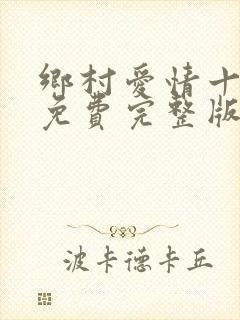 鄉村愛情十
免費完整版
波卡德卡丘